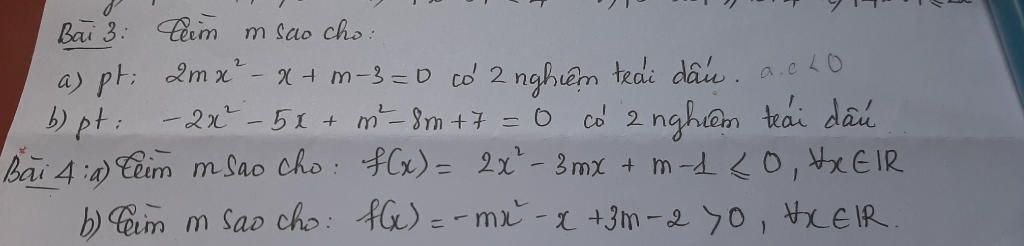 Bài 3: Tìm m sao cho:
a) pt: 2mx² - x + m - 3 = 0 có 2 nghiệm trái dấu. a.c < 0
b) pt: -2x² - 5x + m² - 8m + 7 = 0 có 2 nghiệm trái dấu
Bài 4: a) Tìm m sao cho: f(x) = 2x² - 3mx + m - 1 ⩽ 0, ∀x ∈ IR
b) Tìm m sao cho: f(x) = -mx² - x + 3m - 2 > 0, ∀x ∈ IR.